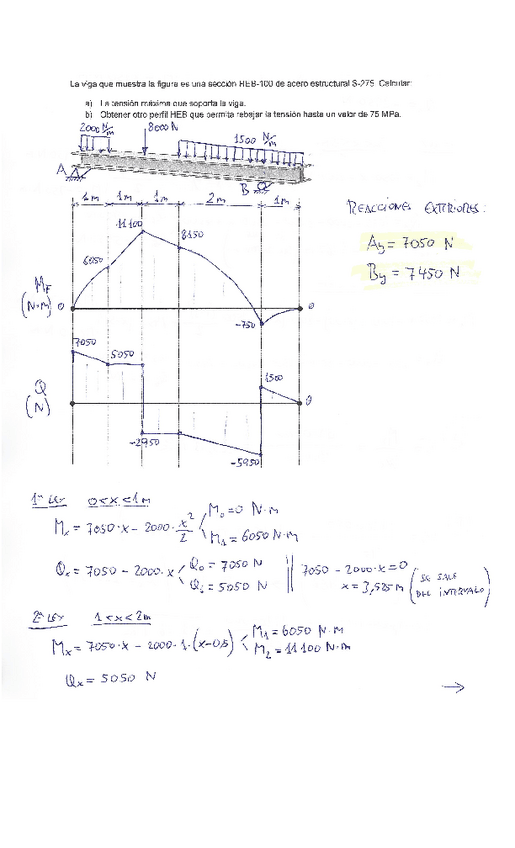 La viga que muestra la figura es una sección HEB-100 de acero estructural S-275. Calcular:
a) La tensión máxima que soporta la viga.
b) Obtener otro perfil HEB que permita rebajar la tensión hasta un valor de 75 MPa.
2000 N/m 8000 N 1500 N/m
A B
1m 1m 1m 2m 1m
REACCIONES EXTERIORES:
Ay = 7050 N
By = 7450 N
MF (N·m) 0 6050 11100 8150 -750 0
Q (N) 7050 5050 -2950 -5950 1500 0
1ª LEY 0<x<1m
Mx = 7050·x - 2000·x²/2 M₀=0 N·m
M₁ = 6050 N·m
Qx = 7050 - 2000·x Q₀ = 7050 N || 7050 - 2000·x=0
Q₁ = 5050 N x = 3,525 m (SE SALE DEL INTERVALO)
2ª LEY 1<x<2m
Mx = 7050·x - 2000·1·(x-0,5) M₁ = 6050 N·m
M₂ = 11100 N·m
Qx = 5050 N
→